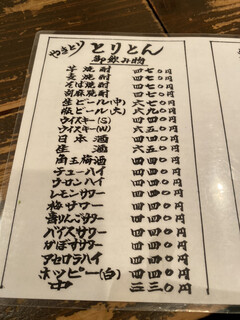 やきとり とりとん
御飲み物
芋焼酎 四七〇円
麦焼酎 四七〇円
そば焼酎 四七〇円
胡麻焼酎 四七〇円
生ビール(中) 六七〇円
瓶ビール(大) 六九〇円
ウイスキー(S) 四四〇円
ウイスキー(W) 六五〇円
日本酒 四四〇円
生酒 六五〇円
南王梅酒 四四〇円
チューハイ 四四〇円
ウーロンハイ 四四〇円
レモンサワー 四四〇円
梅サワー 四四〇円
青りんごサワー 四四〇円
バイスサワー 四四〇円
かぼすサワー 四四〇円
アセロラハイ 四四〇円
ホッピー(白) 四四〇円
中 三三〇円